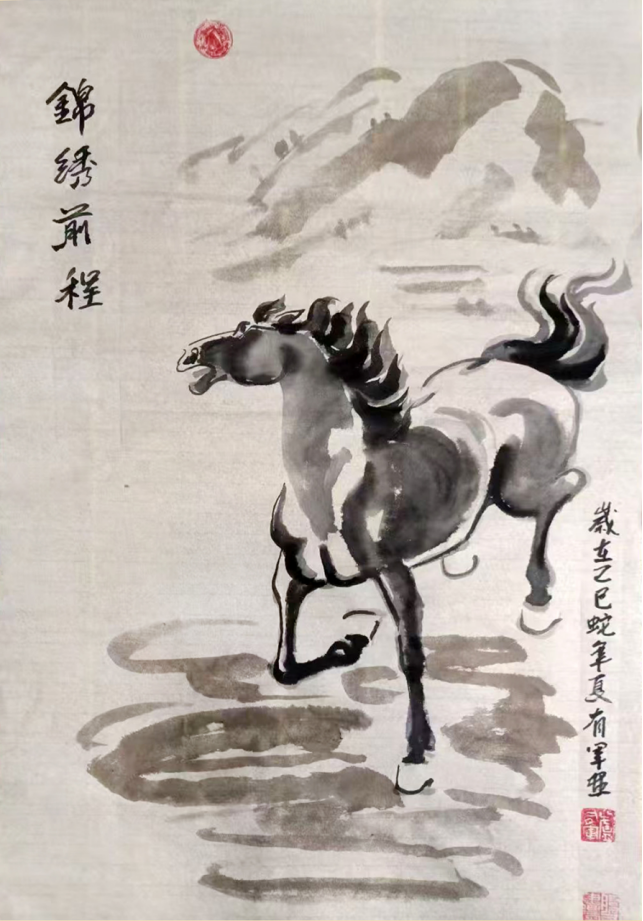 錦綉前程
歲在乙巳蛇年夏有軍畫